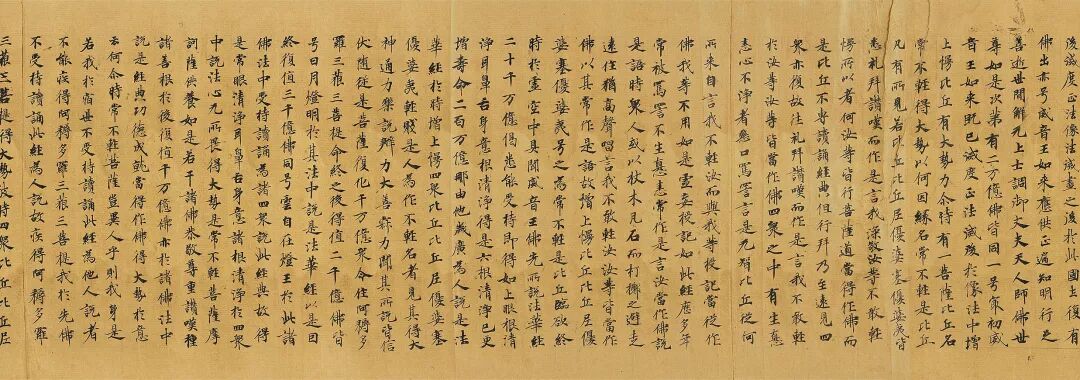 後滅度正法像法滅盡之後於此國土復有
佛出亦号威音王如來應供正遍知明行足
善逝世間解无上士調御丈夫天人師佛世
尊如是次第有二万億佛皆同一号寂初威
音王如來既已滅度正法滅後於像法中增
上慢比丘有大勢力尒時有一菩薩比丘名
常不輕得大勢以何因緣名常不輕是比丘
凡有所見若比丘比丘尼優婆塞優婆夷皆
悉礼拜讚嘆而作是言我深敬汝等不敢輕
慢所以者何汝等皆行菩薩道當得作佛而
是比丘不專讀誦經典但行礼拜乃至遠見四
衆亦復故往礼拜讚嘆而作是言我不敢輕
於汝等汝等皆當作佛四衆之中有生恚
恚心不淨者惡口罵詈言是无智比丘從何
所來自言我不輕汝而與我等授記當得作
佛我等不用如是虛妄授記如此經歷多年
常被罵詈不生恚恚常作是言汝當作佛說
是語時衆人或以杖木瓦石而打擲之避走
遠住猶高聲唱言我不敢輕汝汝等皆當作
佛以其常作是語故增上慢比丘比丘尼優
婆塞優婆夷号之為常不輕是比丘臨欲終
時於虛空中具聞威音王佛先所說法華經
二十千万億偈悉能受持即得如上眼根清
淨耳鼻舌身意根清淨得是六根清淨已更
增壽命二百万億那由他歲廣為人說是法
華經於時增上慢四衆比丘比丘尼優婆塞
優婆夷輕賤是人為作不輕名者見其得大
神通力樂說辯力大善寂力聞其所說皆信
伏隨從是菩薩復化千万億衆令住阿耨多
羅三藐三菩提命終之後得值二千億佛皆
号日月燈明於其法中說是法華經以是因
終復值三千億佛同号雲自在燈王於此諸
佛法中受持讀誦為諸四衆說此經典故得
是常眼清淨耳鼻舌身意諸根清淨於四衆
中說法心无所畏得大勢是常不輕菩薩摩
訶薩供養如是若干諸佛恭敬尊重讚嘆種
諸善根於後復值千万億佛亦於諸佛法中
說是經典功德成就當得作佛得大勢於意
云何尒時常不輕菩薩豈異人乎則我身是
若我於宿世不受持讀誦此經為他人說者
不能疾得阿耨多羅三藐三菩提我於先佛
所受持讀誦此經為人說故疾得阿耨多羅
三藐三菩提得大勢彼時四衆比丘比丘尼